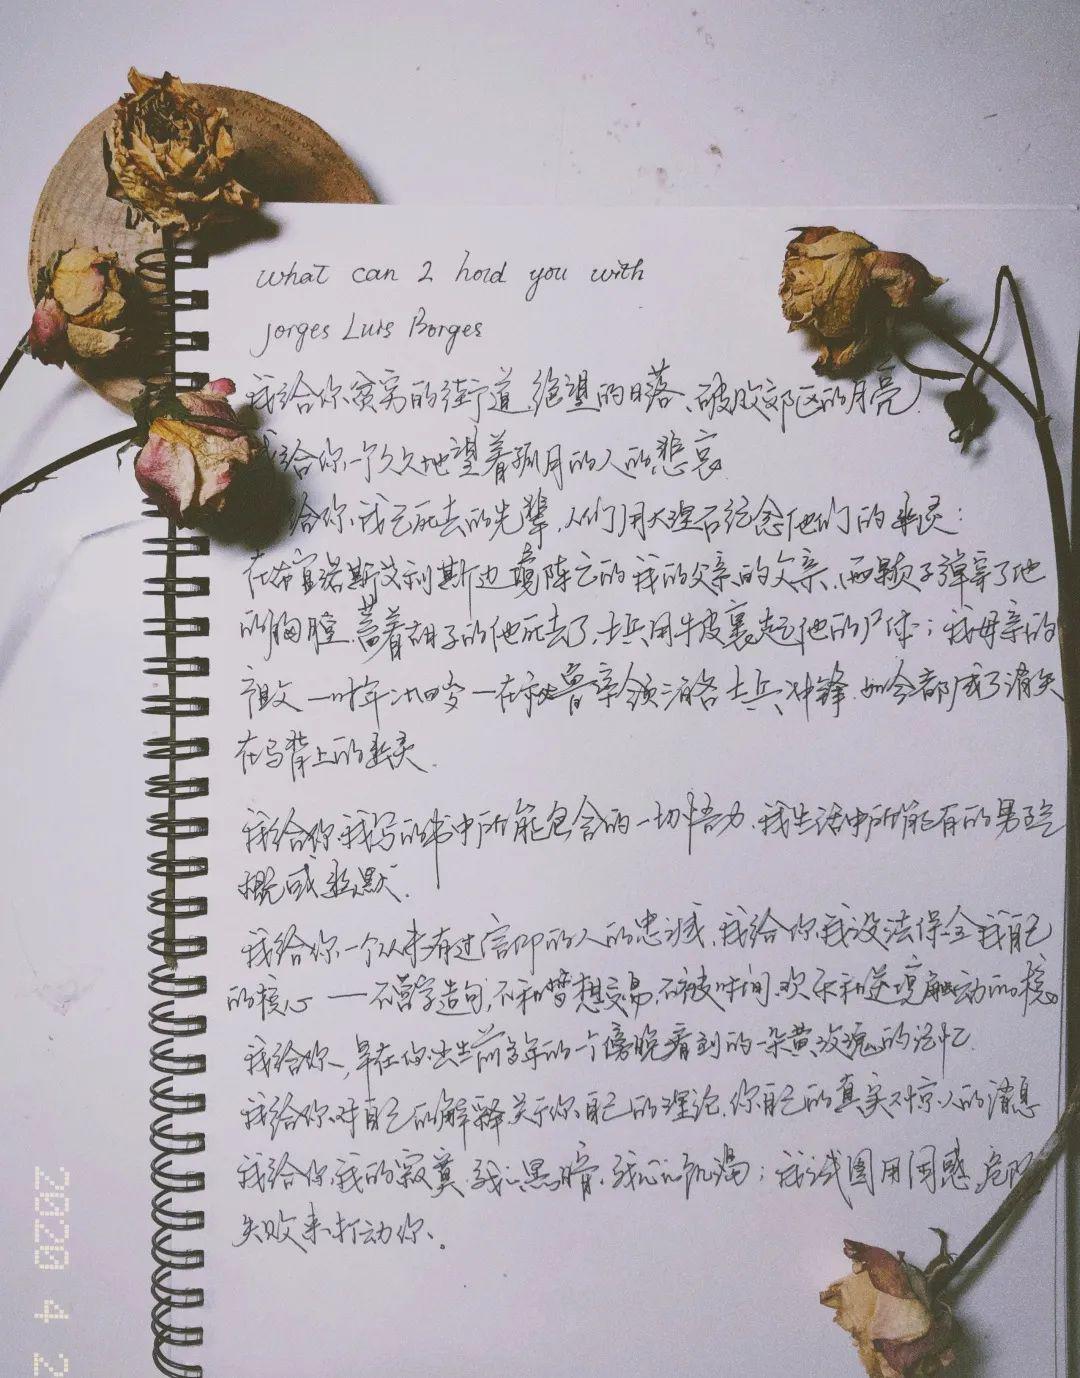 what can I hold you with
Jorges Luis Borges
我给你、贫穷的街道、绝望的日落、破败郊区的月亮.
我给你、一个久久地望着孤月的人的悲哀.
给你、我已死去的先辈,人们用大理石纪念他们的幽灵:
在布宜诺斯艾利斯边境阵亡的我的父亲的父亲、两颗子弹穿了他
的胸膛.蓄着胡子的他死去了,士兵用牛皮裹起他的尸体;我母亲的
祖父——时年廿四岁——在秘鲁率领三百名士兵冲锋,如今都成了消失
在马背上的幽灵.
我给你、我写的书中所能包含的一切悟力、我生活中所能有的男子气
概或幽默.
我给你、一个从未有过信仰的人的忠诚.我给你、我没法保全我自己
的核心——不营字造句,不和梦想交易,不被时间、欢乐和逆境触动的核心
我给你,早在你出生前多年的一个傍晚看到的一朵黄玫瑰的记忆.
我给你、对自己的解释.关于你自己的理论,你自己的真实不惊人的消息
我给你、我的寂寞、我的黑暗、我心的饥渴;我试图用困惑、危险
失败来打动你、。
2020 4 2